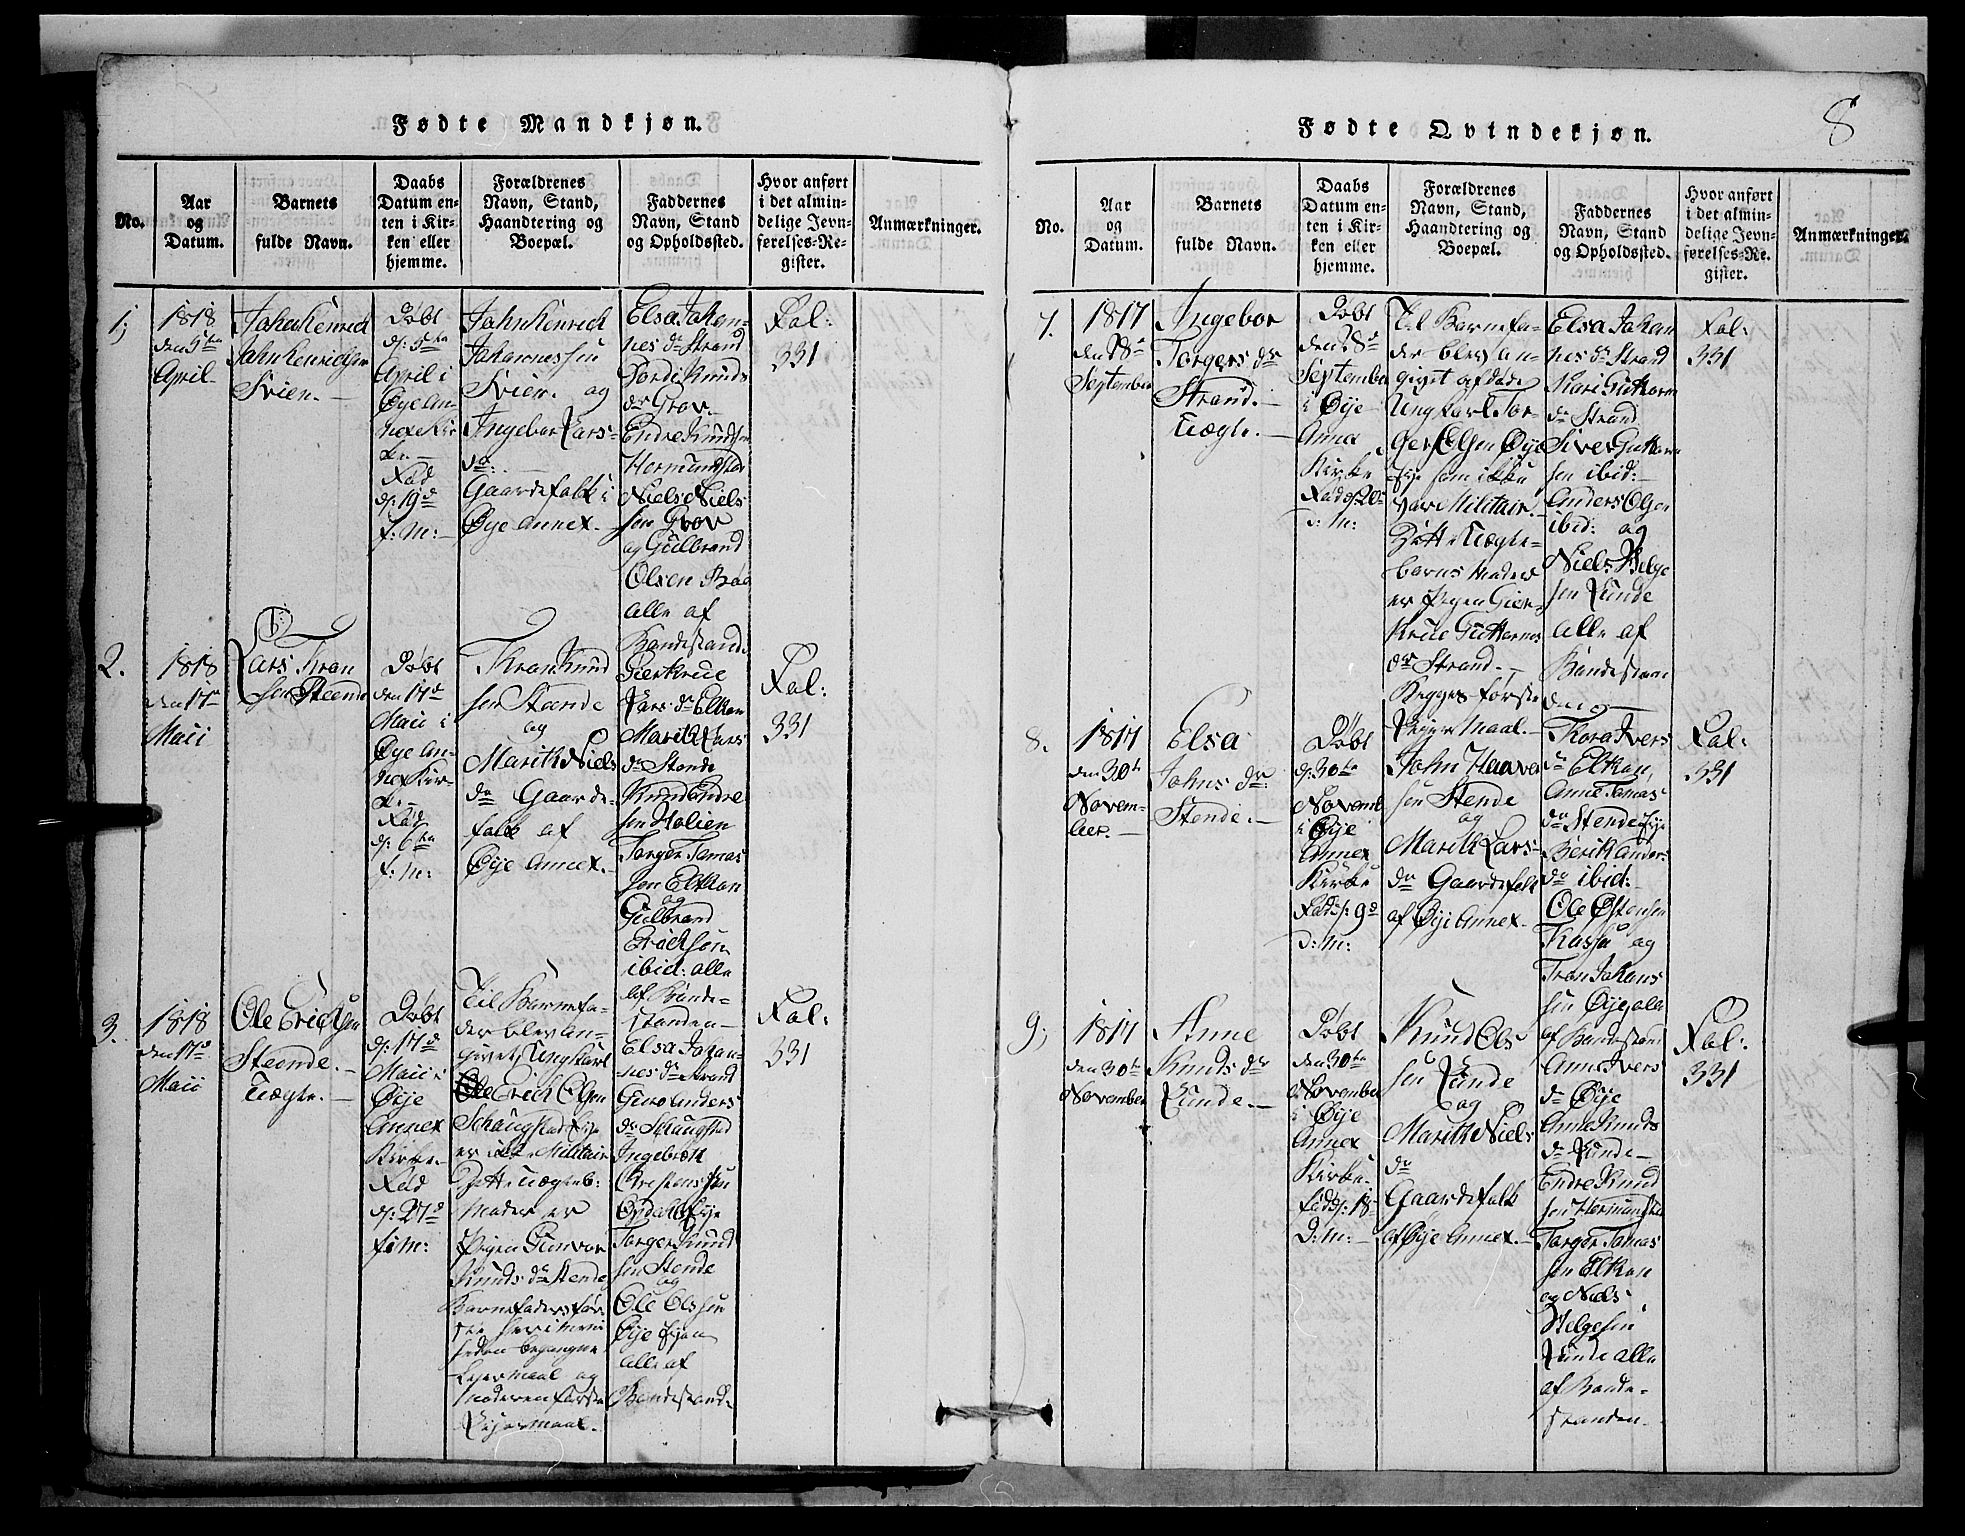 Fødte Mandkjøn.
No.
Aar
og
Datum.
Barnets
fulde Navn.
Daabs
Datum en-
ten i Kir-
ken eller
hjemme.
Forældrenes
Navn, Stand,
Haandtering og
Boepæl.
Faddernes
Navn, Stand
og Opholdssted.
Hvor anført
i det almin-
delige Jevn-
førelses-Re-
gister.
Anmærkninger.
1,
1818
den 5te
April
John Henrich
John Henrichsen
Svien.
Døbt
d: 5te
April i
Øye An-
nex Kir-
ke.
Fød
d: 19d
f: M:
John Henrich
Johannessen
Svien og
Ingebor Lars-
dr:
Gaardefolk i
Øye Annex.
Elsa Johan-
nes dr Strand
Jordi Knuds
dr Grov
Endre Knudsen
Hermundstad
Niels Niels
sen Grov
og Gulbrand
Olsen Bøe
alle af
Bondestand.
Fol:
331
2.
1818
den 17de
Maii
Lars Tron
sen Steende
Døbt
den 17d
Maii i
Øye An-
nex Kir-
ke
Fød
d: 6te
f: M:
Tron Knud
sen Stende
og
Marith Niels
dr Gaarde-
folk af
Øye Annex.
Giertrue
Lars dr Elken
Marith Lars
dr Stende
Knud Endre
sen Holien
Torger Tomas
sen Elken
og
Gulbrand
Erichsen
ibid: alle
af Bonde-
standen
Fol:
331
3.
1818
den 17d
Maii
Ole Erichsen
Steende.
Uægte.
Døbt
d: 17d
Maii i
Øye
Annex
Kirke
Fød
d: 27d
f: M:
Til Barnefa-
der blev an-
givet Ungkarl
Erich Olsen
Schougstad Eje
er ikke Militair
Dette Uægteb:
Moder er
Pigen Gunvor
Knuds dr Stende
Barnefaders før-
ste
begangne
Lejermaal og
Moderen første
Lejermaal.
Elsa Johan-
nes dr Strand
Guro Anders
dr Schougstad
Ingebret
Christensen
Torger Knud
sen Stende
og
Ole Olssen
Øye Ejen
alle af
Bondestand.
Fol:
331
Fødte Qvindekjøn.
8
No.
Aar
og
Datum.
Barnets
fulde Navn.
Daabs
Datum en-
ten i Kir-
ken eller
hjemme.
Forældrenes
Navn, Stand,
Haandtering og
Boepæl.
Faddernes
Navn, Stand
og Opholdssted.
Hvor anført
i det almin-
delige Jevn-
førelses-Re-
gister.
Anmærkninger.
7.
1817
den 28de
September
Ingebor
Torgers dr
Strand.
Uægte.
Døbt
den 28de
September
i Øye
Annex
Kirke
Fød d: 20de
d: M:
Til Barnefa-
der blev an-
givet afdøde
Ungkarl Tor-
ger Elsen Øye
Eje som ikke
var Militair.
Dette Uægte-
barns Moder
er Pigen Gier-
true Guttorms
dr Strand.
Begges første
Lejermaal.
Elsa Johan
nes dr Strand
Mari Guttorm
dr Strand
Siver Guttorm
sen ibid:
Anders Olsen
ibid: og
Niels Helge
sen Runde
alle af
Bondestan
den
Fol:
331
8.
1817
den 30te
Novem-
ber.
Elsa
Johns dr:
Stende.
Døbt
d: 30te
Novemb
i Øye
Annex
Kirke
Fød d: 9d
d: M:
John Haavor
sen Stende
og
Marith Lars
dr Gaardefolk
af Øye Annex.
Thora Ivers
dr Elken,
Anne Tomas
dr Stende Eje
Berith Anders
dr ibid:
Ole Østensen
Kasa og
Tron Johans
sen Øye alle
af Bondestand
Fol:
331
9,
1817
den 30te
November
Anne
Knuds dr
Runde.
Døbt
den 30te
November
i Øye
Annex
Kirke
Fød d: 18
d: M:
Knud Ols
sen Runde
og
Marith Niels
dr
Gaardefolk
af Øye Annex.
Anne Ivers
dr Øye
Anne Knuds
dr Runde
Endre Knud
sen Hermunstad
Torger Tomas
sen Elken
og Niels
Helgesen
Runde alle
af Bonde-
standen.
Fol:
331